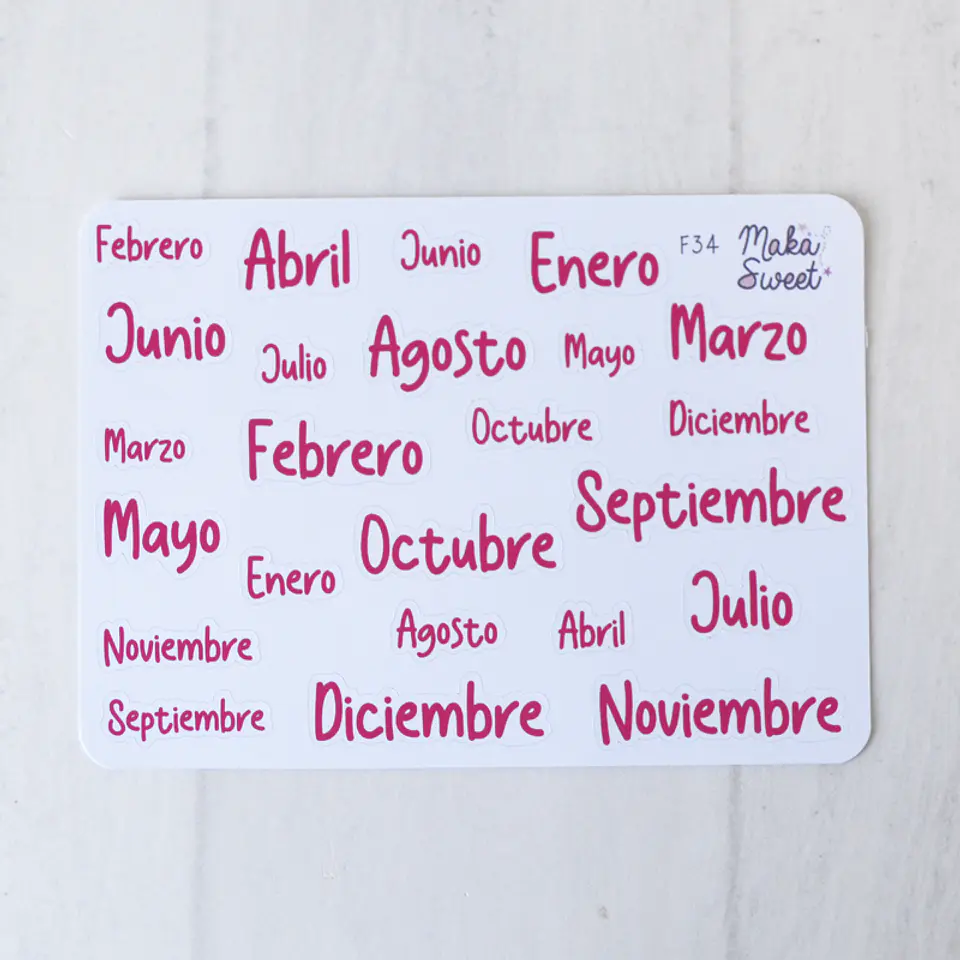 Febrero Abril Junio Enero F34 Maka Sweet
Junio Julio Agosto Mayo Marzo
Marzo Febrero Octubre Diciembre
Mayo Enero Octubre Septiembre
Noviembre Agosto Abril Julio
Septiembre Diciembre Noviembre